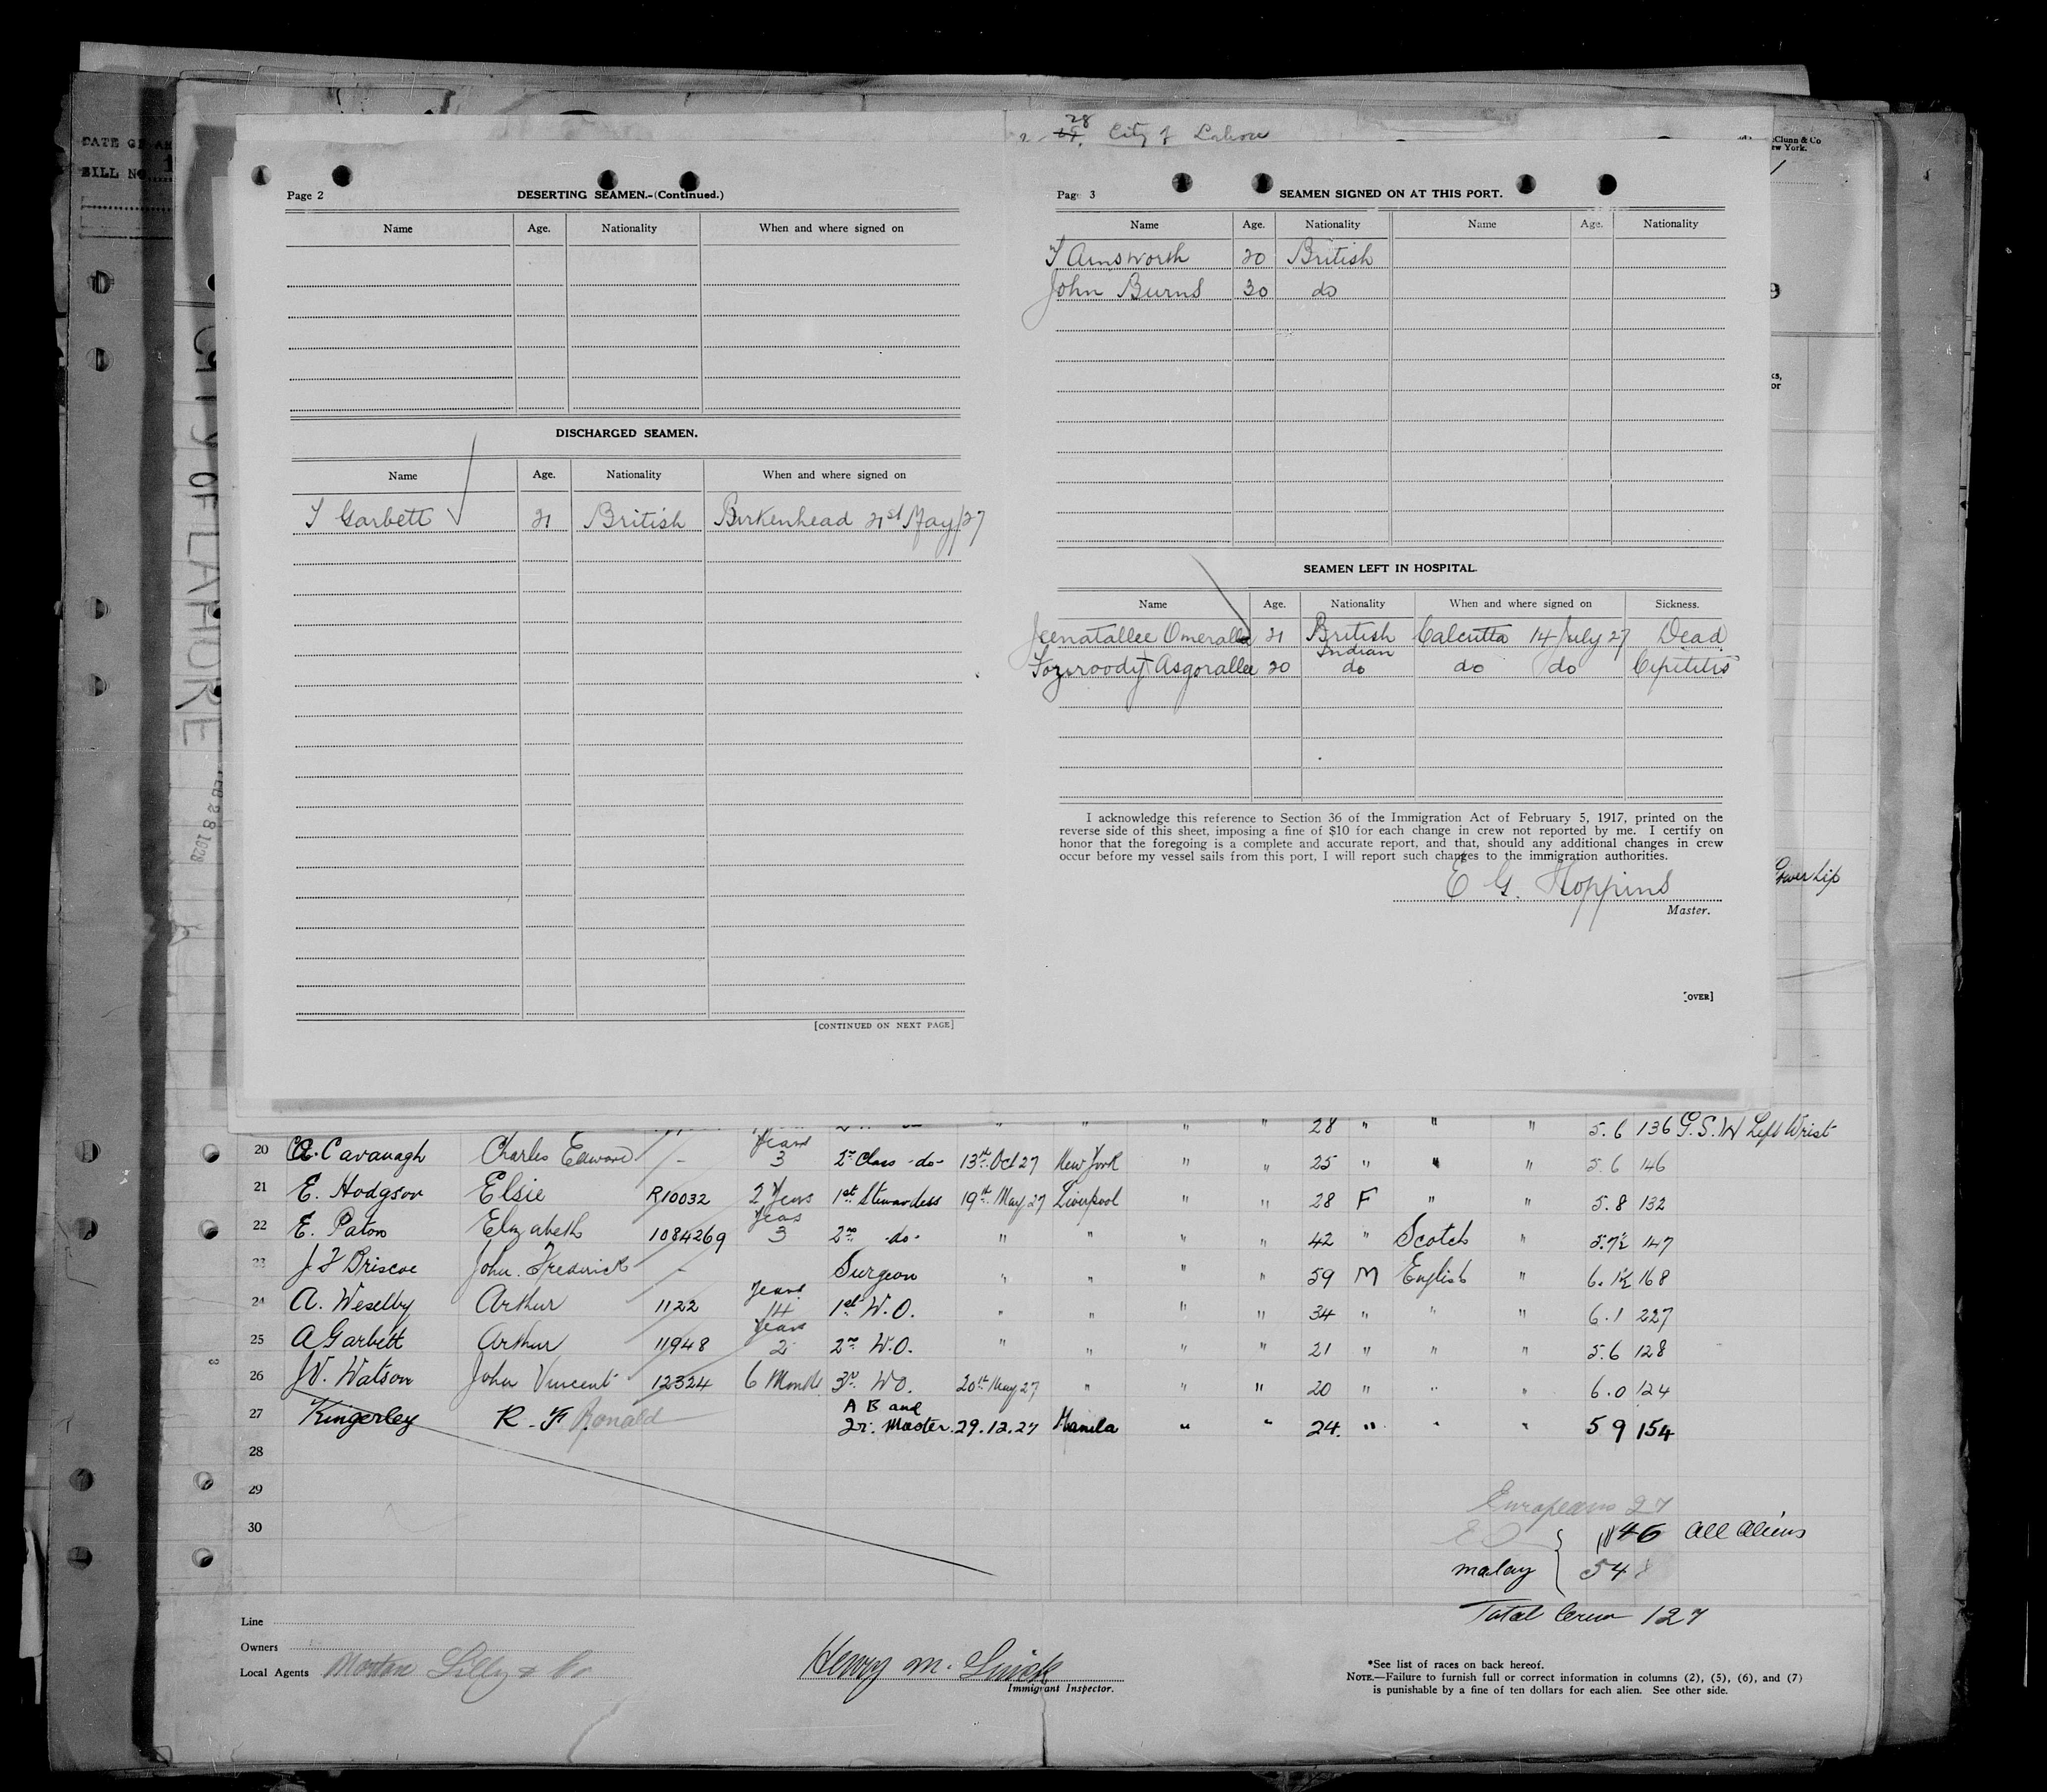 28
City of Lahore
Clunn & Co
ew York.
DATE OF AR
BILL NO.
CITY OF LAHORE
FEB 28 1928
Page 2
DESERTING SEAMEN.-(Continued.)
Name Age. Nationality When and where signed on
DISCHARGED SEAMEN.
Name Age. Nationality When and where signed on
T Garbett 21 British Birkenhead 21st May/27
[CONTINUED ON NEXT PAGE]
Page 3
SEAMEN SIGNED ON AT THIS PORT.
Name Age. Nationality Name Age. Nationality
T Ainsworth 20 British
John Burns 30 do
SEAMEN LEFT IN HOSPITAL.
Name Age. Nationality When and where signed on Sickness.
Jeenatallee Omerallee 21 British Indian Calcutta 14 July 27 Dead
Asgorallee 20 do do do
I acknowledge this reference to Section 36 of the Immigration Act of February 5, 1917, printed on the
reverse side of this sheet, imposing a fine of $10 for each change in crew not reported by me. I certify on
honor that the foregoing is a complete and accurate report, and that, should any additional changes in crew
occur before my vessel sails from this port, I will report such changes to the immigration authorities.
E G. Hoppins
Master.
[OVER]
Lower Lip
" " " " 28 " " " 5.6 136 G.S.W Left Wrist
20 C. Cavanagh Charles Edward - Years 3 2nd Class -do- 13th Oct 27 New York " " 25 " " " 5.6 146
21 E. Hodgson Elsie R10032 2 Years 1st Stewardess 19th May 27 Liverpool " " 28 F " " 5.8 132
22 E. Paton Elizabeth 1084269 Years 3 2nd -do- " " " " 42 " Scotch " 5.7½ 147
23 J F Briscoe John Frederick - Surgeon " " " " 59 M English " 6.1½ 168
24 A. Weselby Arthur 1122 Years 14 1st W.O. " " " " 34 " " " 6.1 227
25 A Garbett Arthur 11948 Years 2 2nd W.O. " " " " 21 " " " 5.6 128
26 J.V. Watson John Vincent 12324 6 Months 3rd W.O. 20th May 27 " " " 20 " " " 6.0 124
27 Kingerley R. F Ronald A B and Qr. Master. 29.12.27 Manila " " 24. " " " 5 9 154
28
29
30
Europeans 27
46 All Aliens
Malay 54
Total Crew 127
Line
Owners
Local Agents Norton Lilly & Co
Henry M.
Immigrant Inspector.
*See list of races on back hereof.
NOTE.—Failure to furnish full or correct information in columns (2), (5), (6), and (7)
is punishable by a fine of ten dollars for each alien. See other side.